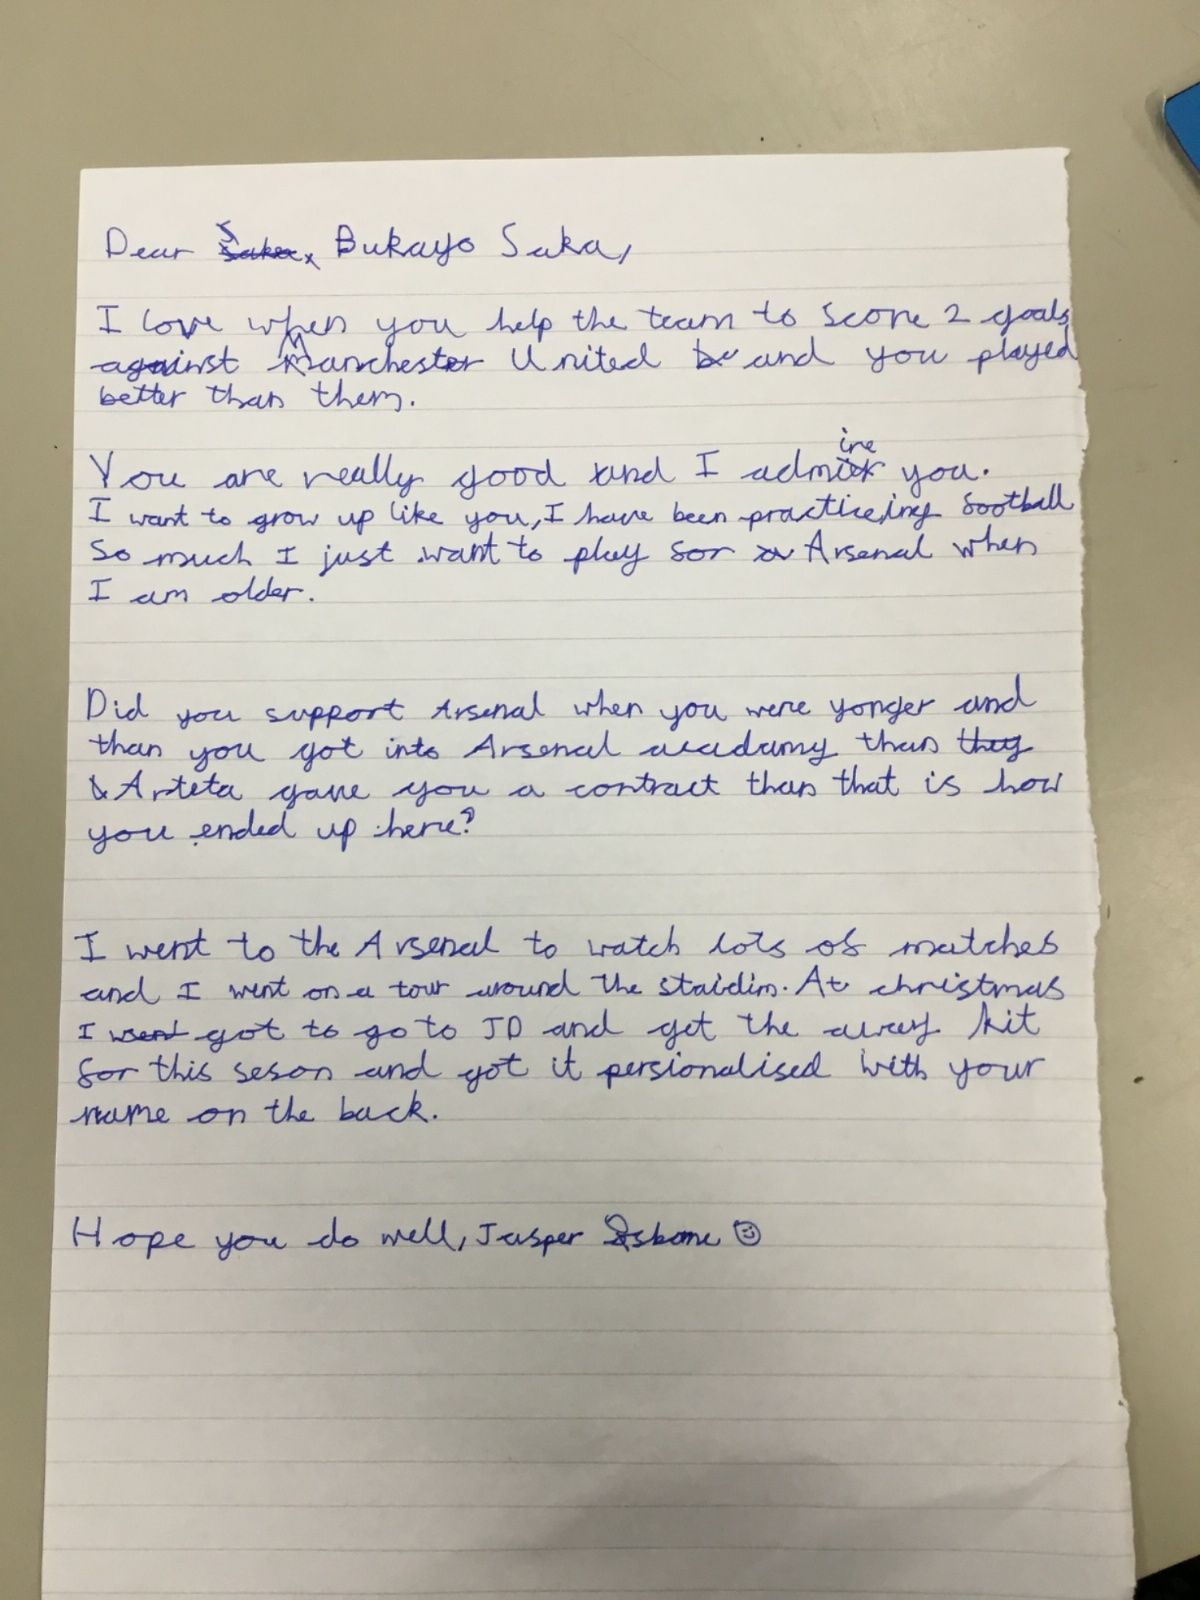 Dear Saka, Bukayo Saka,
I love when you help the team to score 2 goals
against Manchester United be and you played
better than them.
You are really good and I admire you.
I want to grow up like you, I have been practiceing football
so much I just want to play for Arsenal when
I am older.
Did you support Arsenal when you were yonger and
than you got into Arsenal acadamy than they
& Arteta gave you a contract than that is how
you ended up here?
I went to the Arsenal to watch lots of matches
and I went on a tour around the staidim. At christmas
I went got to go to JD and get the away kit
for this seson and got it persionalised with your
name on the back.
Hope you do well, Jasper ☺